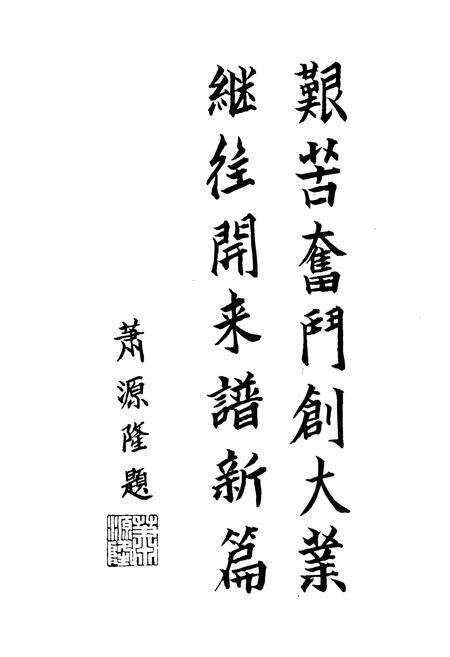 艱苦奮鬥創大業
継往開来譜新篇
蕭源隆題
蕭源隆